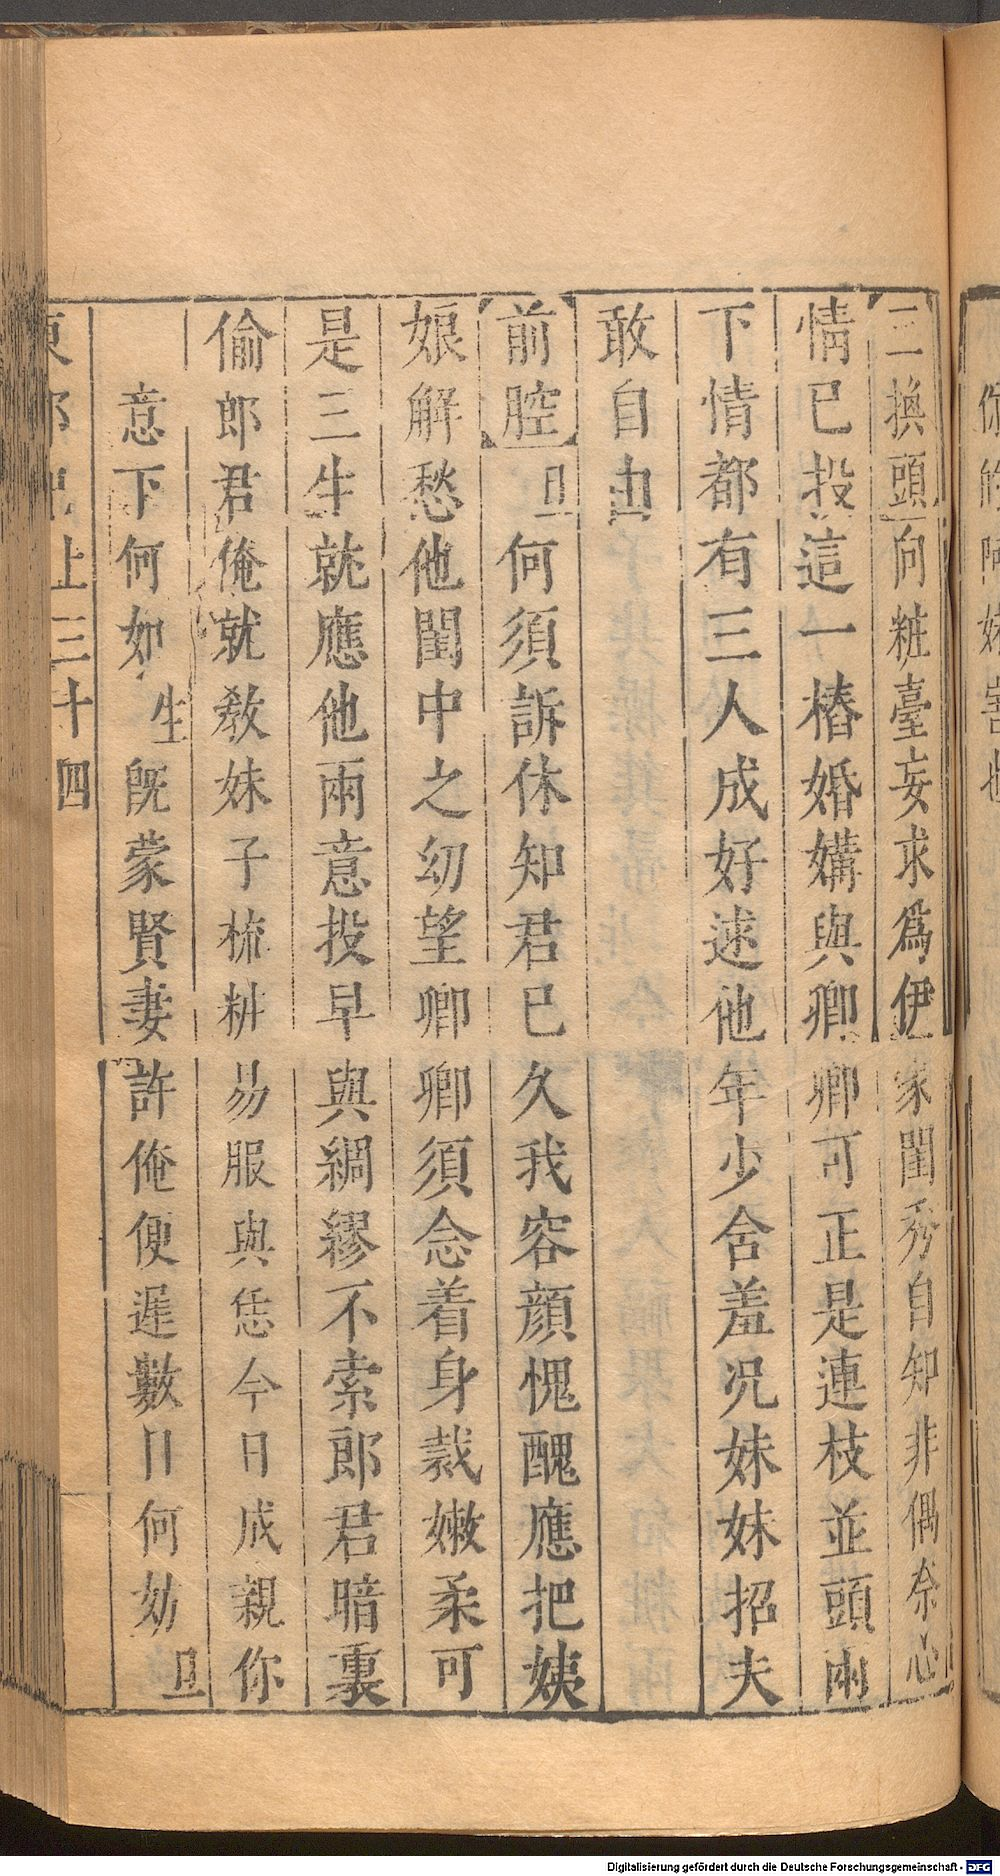 你的
妹害也
二換頭向粧臺妄求為伊家閨秀自知非偶奈心
情已投這一樁婚媾與卿卿可正是連枝並頭兩
下情都有三人成好逑他年少含羞况妹妹招夫
敢自由
前腔旦何須訴休知君已久我容顔愧醜應把姨
娘解愁他閨中之幼望卿卿須念着身裁嫩柔可
是三生就應他兩意投早與綢繆不索郎君暗裏
偷郎君俺就敎妹子梳粧易服與恁今日成親你
意下何如生旣蒙賢妻許俺便遲數日何妨旦
東郭記上三十四
Digitalisierung gefördert durch die Deutsche Forschungsgemeinschaft - DFG